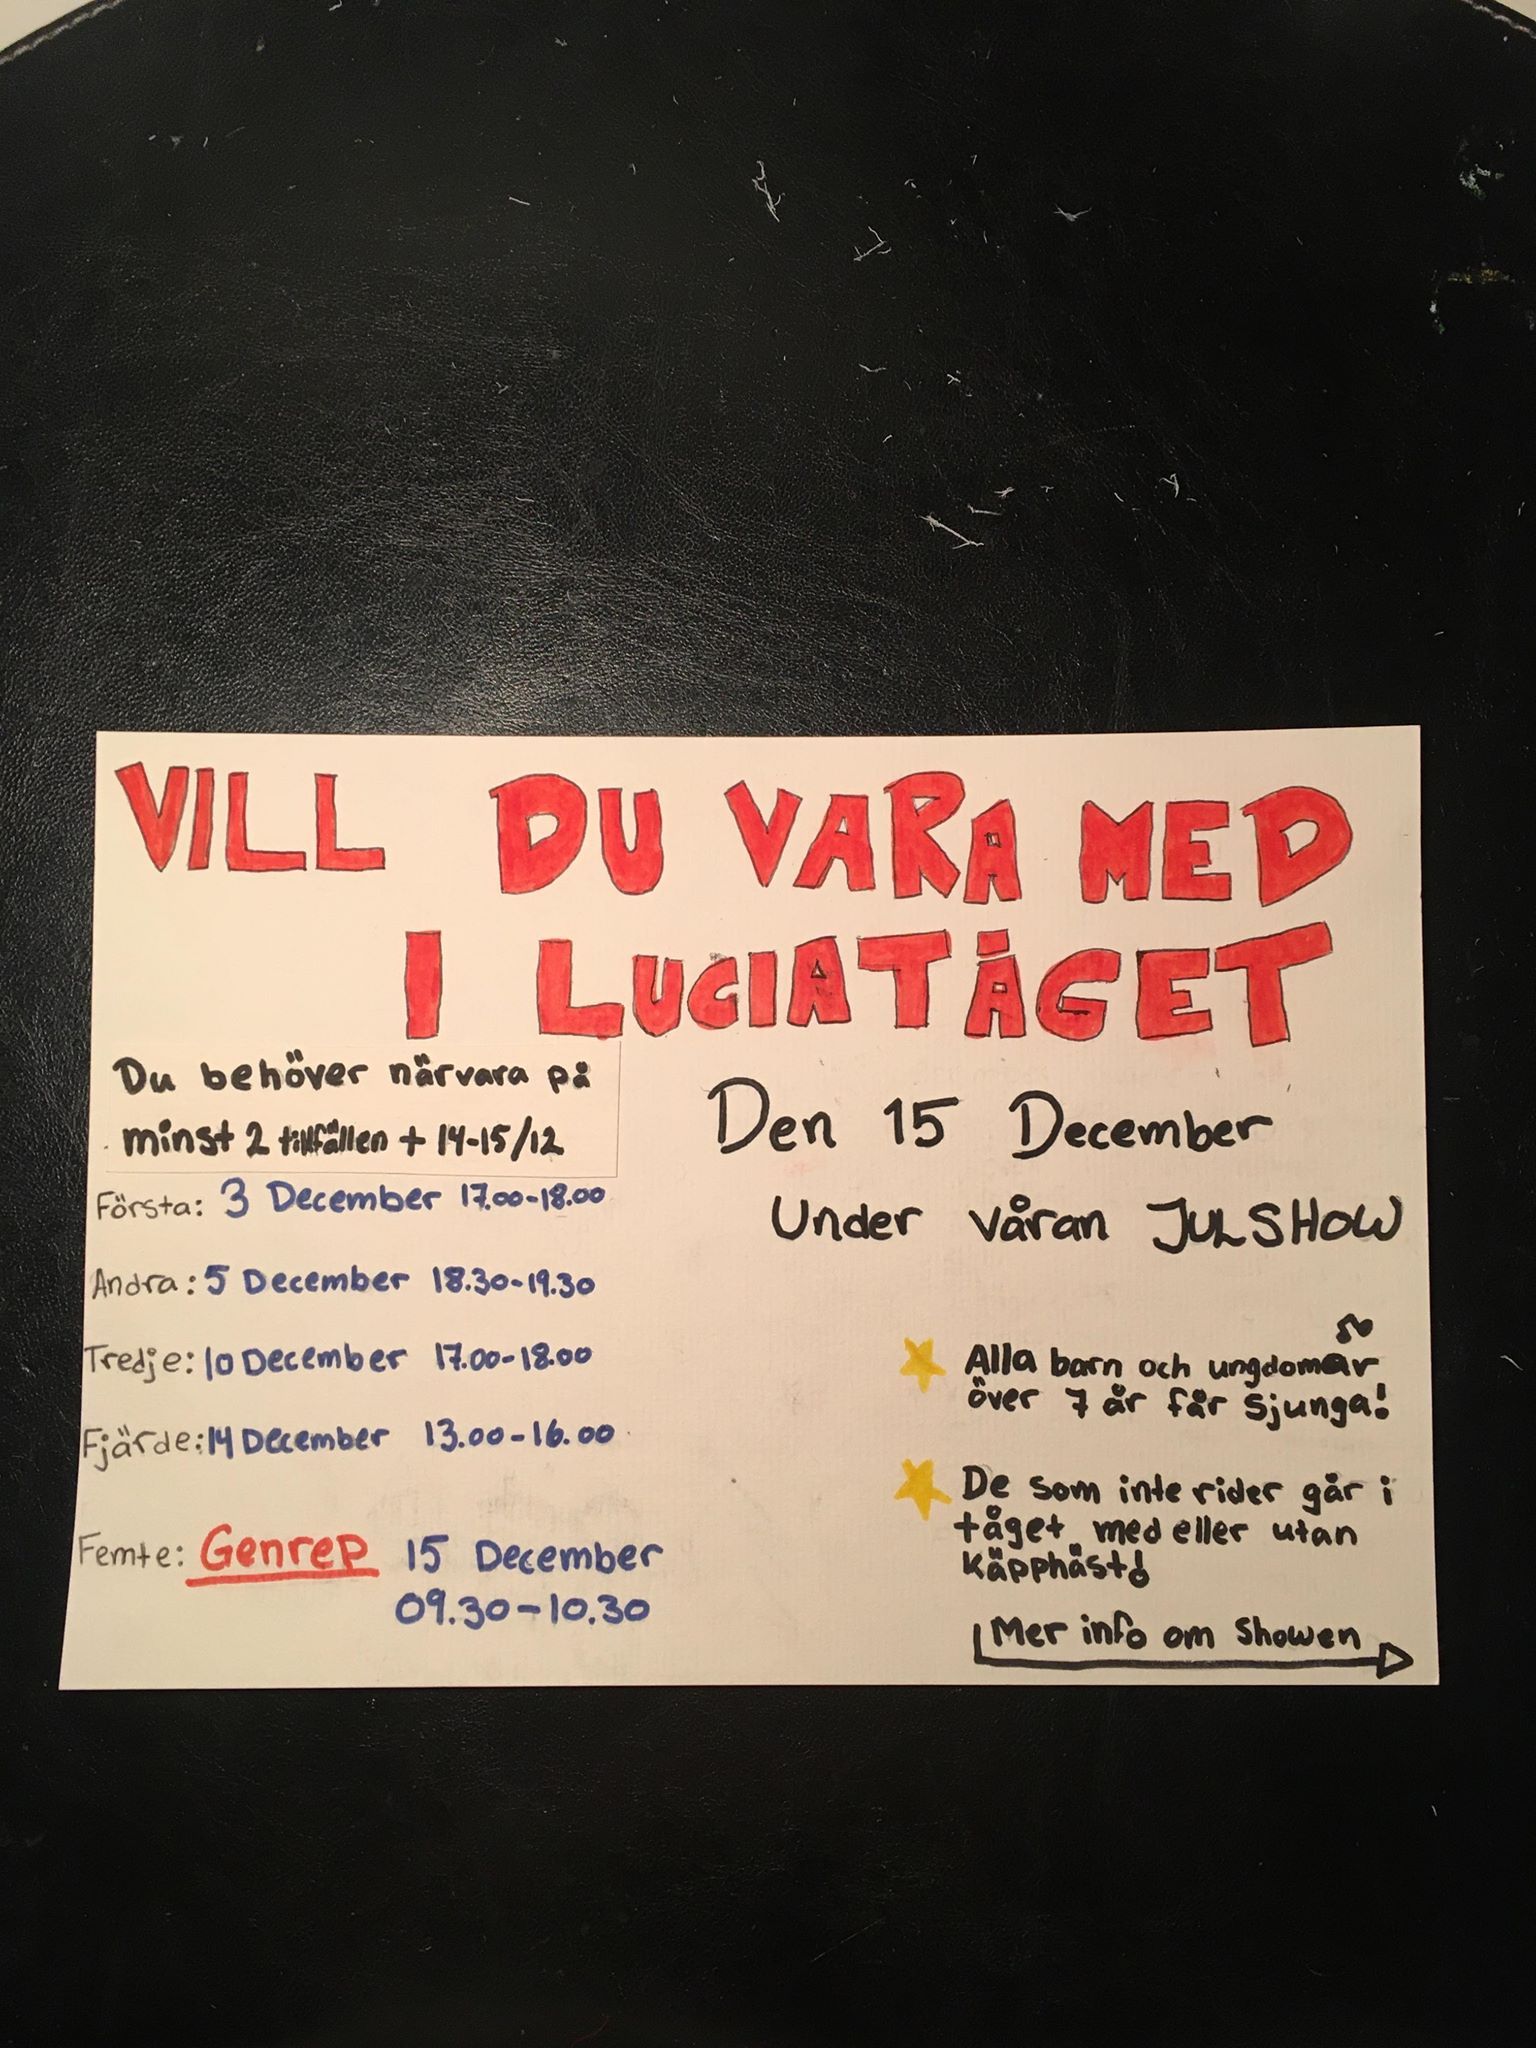 VILL DU VARA MED
I LUCIATÅGET
Du behöver närvara på
minst 2 tillfällen + 14-15/12
Första: 3 December 17.00-18.00
Andra: 5 December 18.30-19.30
Tredje: 10 December 17.00-18.00
Fjärde: 14 December 13.00-16.00
Femte: Genrep 15 December
09.30-10.30
Den 15 December
Under våran JULSHOW
Alla barn och ungdomar
över 7 år får sjunga!
De som inte rider går i
tåget med eller utan
käpphäst!
Mer info om showen